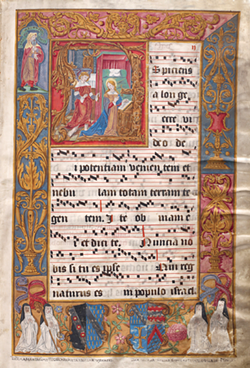 II
Spiciens
a lon ge
ecce vi
de o de
i potentiam venien tem et
nebu lam totam terram te
gen tem. I te ob viam e
i et dici te. Nuncia no
bis si tu es ipse Qui reg
naturus es in populo israel.